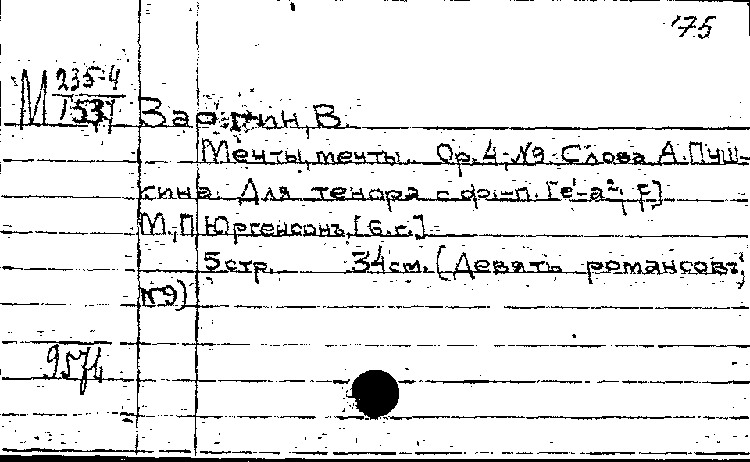 175
М 235-4
153
В.
Мечты, мечты.. Ор. 4, №9. Слова А. Пуш-
кина. Для тенора с ф-п. [e'-a²; F]
М., П. Юргенсонъ, [б.г.]
5 стр. 34 см. (Девять романсовъ,
№9)
9574